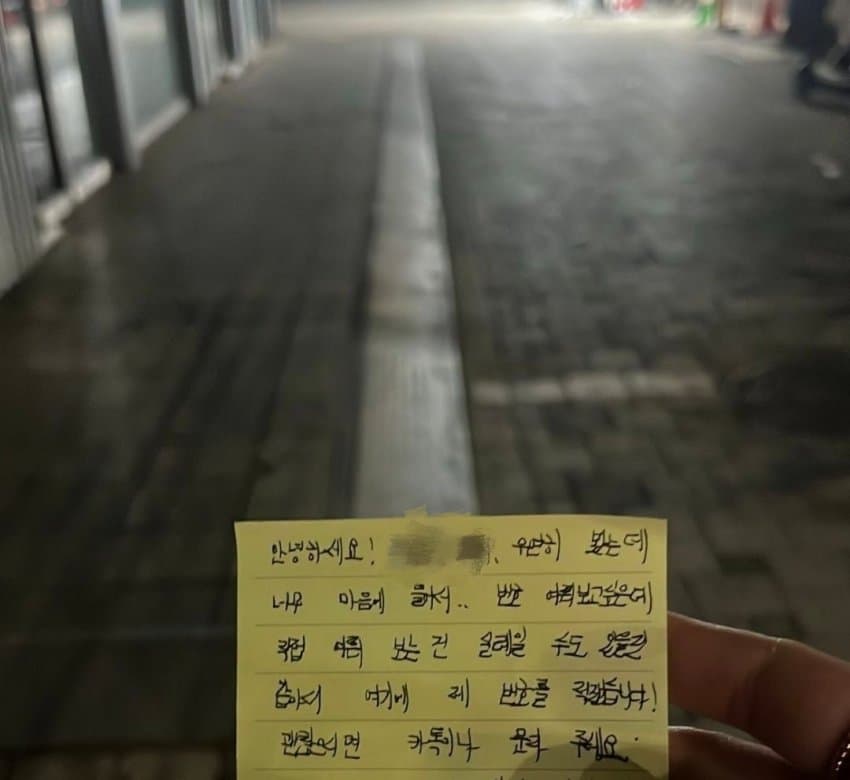 안녕하세요! 우연히 봤는데
너무 마음에 들어서.. 번호 여쭤보고싶은데
직접 여쭤 보는건 실례일 수도 있을것
같아서 여기에 제 번호를 적었습니다!
괜찮으시면 카톡이나 문자 주세요.